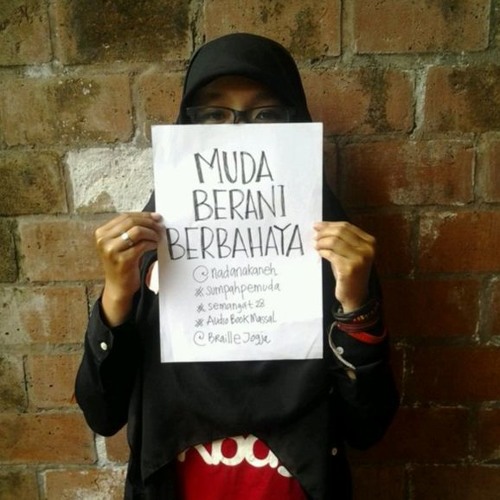 MUDA
BERANI
BERBAHAYA
@nadanakaneh
#sumpahpemuda
#semangat28
#AudioBookMassal
@BrailleJogja